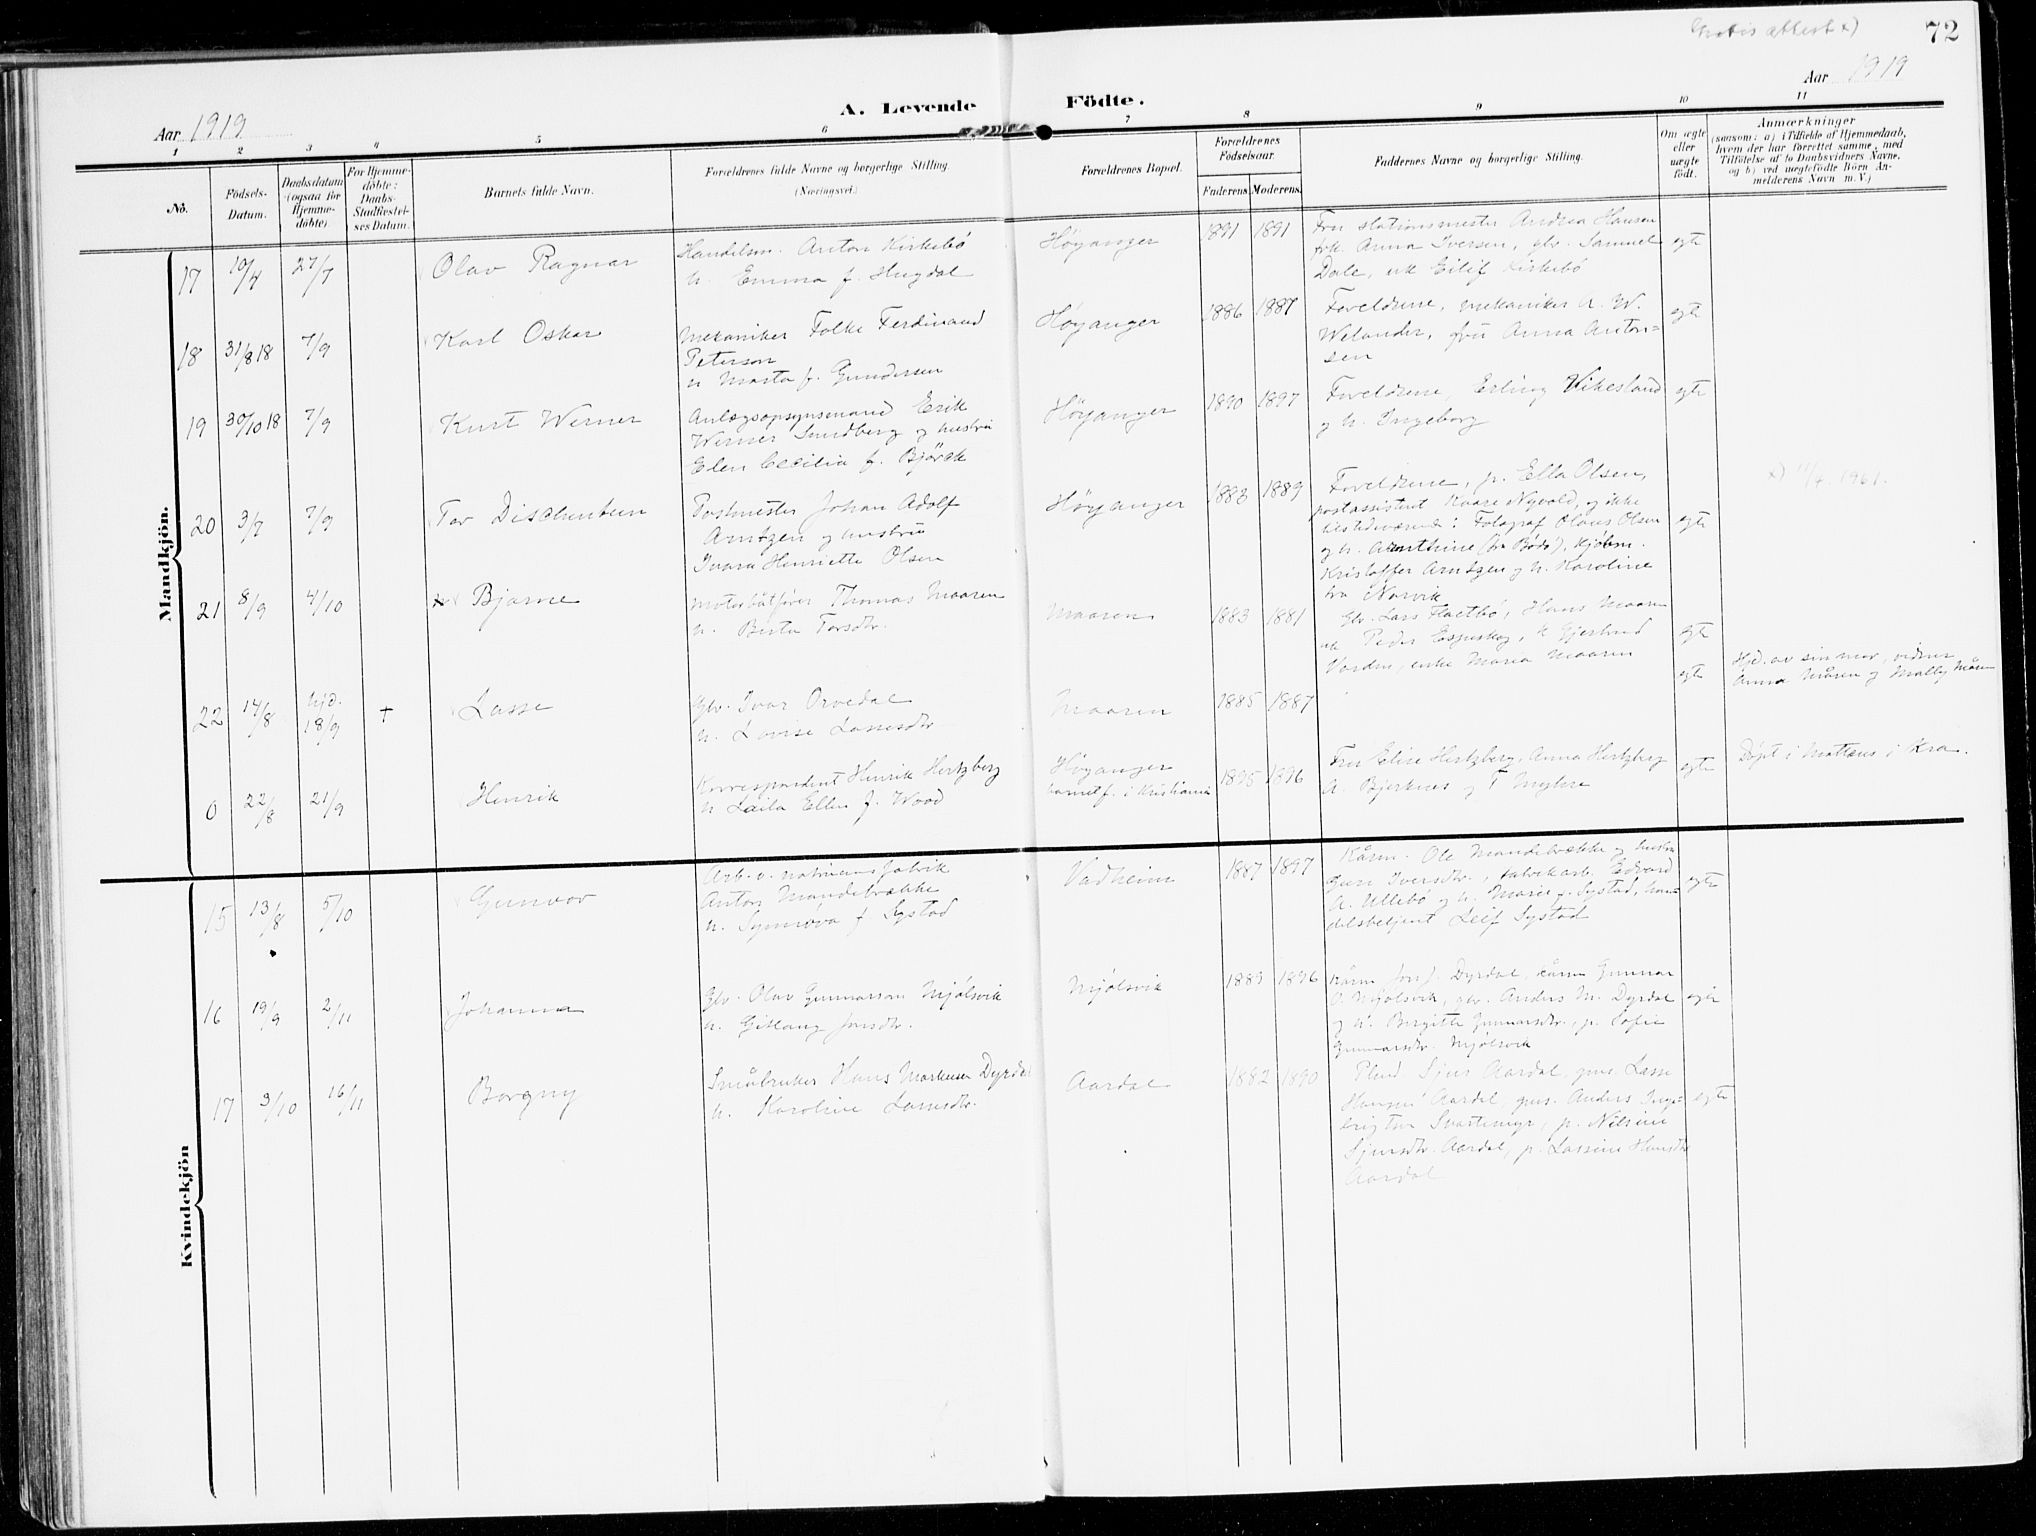 72
Aar 1919
Aar 1919
A. Levende Födte.
1 2 3 4 5 6 7 8 9 10 11
No.
Födsels-Datum.
Daabsdatum (ogsaa for Hjemme-döbte).
For Hjemme-döbte: Daabs-Stadfæstel-ses Datum.
Barnets fulde Navn.
Forældrenes fulde Navne og borgerlige Stilling. (Næringsvei.)
Forældrenes Bopæl.
Forældrenes Födselsaar.
Faderens. Moderens.
Faddernes Navne og borgerlige Stilling.
Om ægte eller uægte födt.
Anmærkninger
(saasom: a) i Tilfælde af Hjemmedaab,
hvem der har forrettet samme, med
Tilföielse af to Daabsvidners Navne,
og b) ved uægtefödte Börn An-
melderens Navn m. V.)
Mandkjön.
17 10/4 27/7 Olav Ragnar
Handelsm. Anton Kirkebö
h. Emma f. Hugdal
Höyanger 1891 1891
Fru stationsmester Andrea Hansen
frk. Anna Iversen, gbr. Samuel
Dale, uk Eilif Kirkebö
egte
18 31/8 18 7/9 Karl Oskar
Mekaniker Folke Ferdinand
Peterson
h Marta f. Gundersen
Höyanger 1886 1887
Foreldrene, mekaniker A. W.
Welander, fru Anna Anton=
sen
egte
19 30/10 18 7/9 Kurt Werner
Anlægsopsynsmand Erik
Werner Sundberg og hustru
Elen Cecilia f. Björck
Höyanger 1890 1897
Foreldrene, Erling Vikesland
og h. Ingeborg
egte
20 3/7 7/9 Tor Dischentun
Postmester Johan Adolf
Arntzen og hustru
Ivara Henriette Olsen
Höyanger 1883 1889
Foreldrene, p. Ella Olsen,
postassistent Kaare Nyvold, og ikke
tilstedeværende: Fotograf Olaus Olsen
og h. Arnthine (fra Bodö), kjöbm.
Kristoffer Arntzen og h. Karoline
fra Narvik
egte
x) 11/4 1961.
21 8/9 4/10 Bjarne
Motorbåtförer Thomas Maaren
h. Berta Torsdtr.
Maaren 1883 1881
Gbr. Lars Flactbö, Hans Maaren
uk Peder Espeskog, k Gjertrud
Vorden, enke Maria Maaren
egte
22 14/8 hjd. 18/9 † Lasse
Gbr. Ivar Orvedal
h. Lovise Lassesdtr
Maaren 1885 1887
egte
Hjd. av sin mor, vidner
Anna Måren og Malby Måren
0 22/8 21/9 Henrik
Korrespondent Henrik Hertzberg
h Laila Ellen f. Wood
Höyanger
barnet f. i Kristiania
1895 1896
Fru Elise Hertzberg, Anna Hertzberg
A. Bjerknes og T Myhre
egte
Döpt i Matteus i Kra.
Kvindekjön
15 13/8 5/10 Gunvor
Arb. v. natriumsfabrik
Anton Mandebrække
h. Synnöva f. Systad
Vadheim 1887 1897
Kårm. Ole Mandebrække og hustru
Guri Iversdtr., fabrikarb. Edvard
A. Ullebö og h. Marie f. Systad, han=
delsbetjent Leif Systad
egte
16 19/9 2/11 Johanna
Gbr. Olav Gunnarson Mjölsvik
h. Gitlaug Jonsdtr.
Mjölsvik 1889 1896
Kårm Jon J. Dyrdal, kårm Gunnar
O. Mjölsvik, gbr. Anders M. Dyrdal
og h. Birgitte Gunnarsdtr., p. Sofie
Gunnarsdtr. Mjölsvik
egte
17 3/10 16/11 Borgny
Småbruker Hans Markusen Dyrdal
h. Karoline Lassesdtr.
Aardal 1882 1890
Sjur Aardal, gms. Lasse
Aardal, gms. Anders Inge=
brigtsen Svartemyr, p. Nilsine
Sjursdtr. Aardal, p. Lassine Hansdtr
Aardal
egte